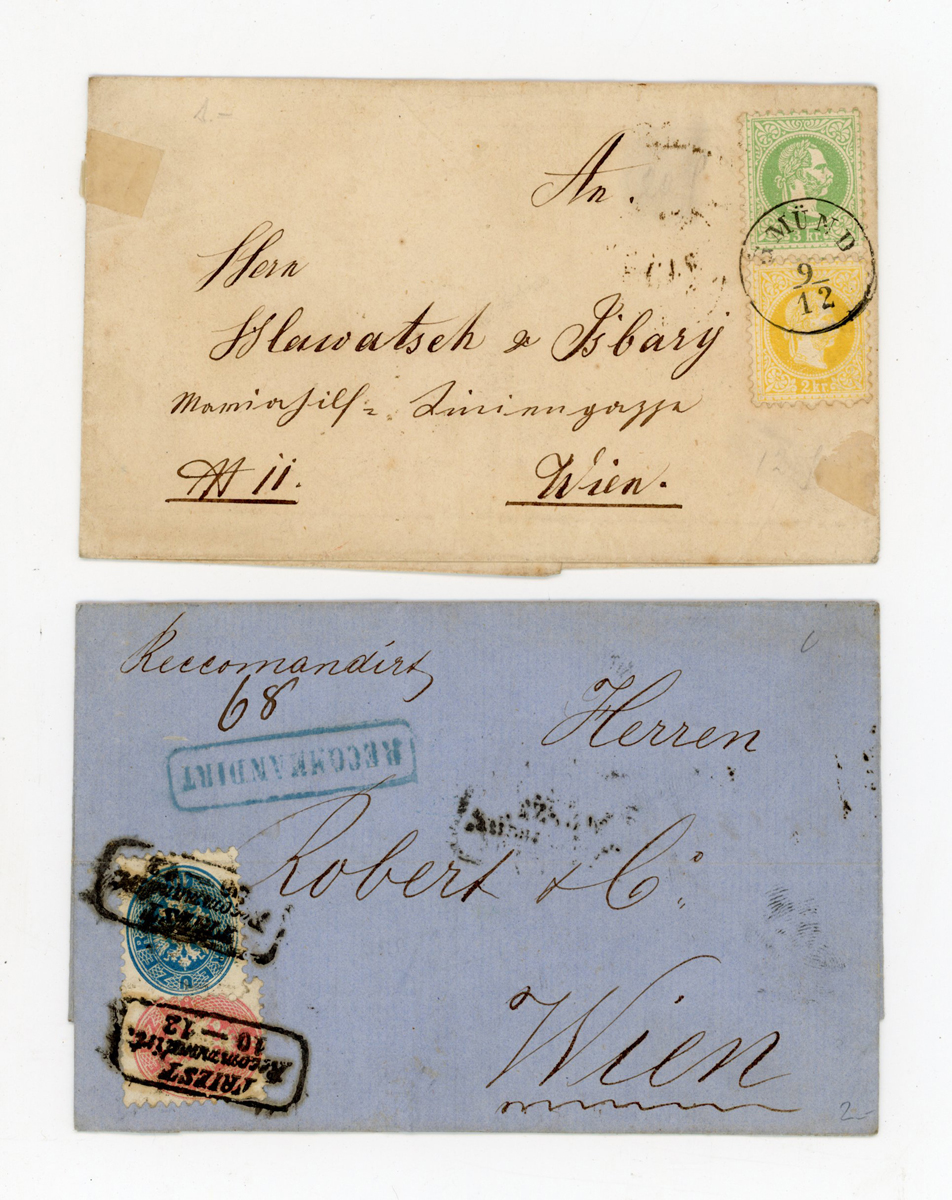 1.-
An.
Herrn
Hlawatsch & Isbarÿ
Mariahilf = Liniengasse
№ 11.
Wien.
3 kr
GMÜND
9/12
2 kr
Reccomandirt
68
RECOMMANDIRT
Herren
Robert & Co.
Wien
TRIEST
Recommandirt.
10 — 12
TRIEST
Recommandirt.
2-